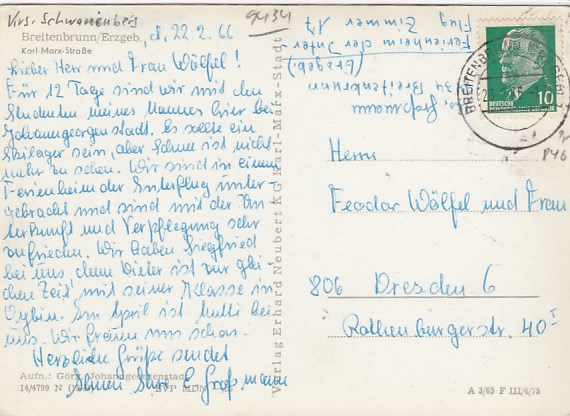 Krs. Schwarzenberg
9434
Breitenbrunn/Erzgeb.
Karl-Marx-Straße
d. 22.2.66
Lieber Herr und Frau Wölfel!
Für 12 Tage sind wir mit den
Studenten meines Mannes hier bei
Johanngeorgenstadt. Es sollte ein
Skilager sein, aber Schnee ist nicht
mehr zu sehen. Wir sind in einem
Ferienheim der Interflug unter-
gebracht und sind mit der Un
terkunft und Verpflegung sehr
zufrieden. Wir haben Siegfried
bei uns denn Dieter ist zur glei-
chen Zeit mit seiner Klasse in
Oybin. Im April ist Mutti bei
uns. Wir freuen uns schon.
Herzliche Grüße sendet
Ihnen Ihre E Großmann
Aufn.: Görg, Johanngeorgenstadt
14/4799 N
Verlag Erhard Neubert KG Karl-Marx-Stadt
Großmann
94 34 Breitenbrunn
(Erzgeb)
Ferienheim der Inter-
Flug Zimmer 17
BREITENBRUNN
DEUTSCHE
10
846
Herrn
Feodor Wölfel und Frau
806 Dresden 6
Rothenburgerstr. 40 I
A 3/65 F III/6/75